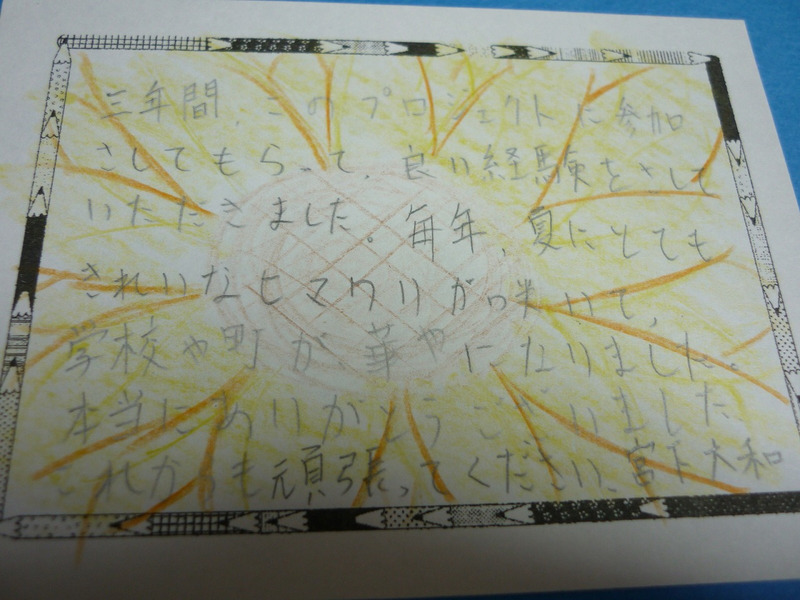 三年間、このプロジェクトに参加
さしてもらって、良い経験をさして
いただきました。毎年、夏にとても
きれいなヒマワリがさいて、
学校や町が、華やになりました。
本当にありがとうございました
これからも頑張ってください。宮下大和